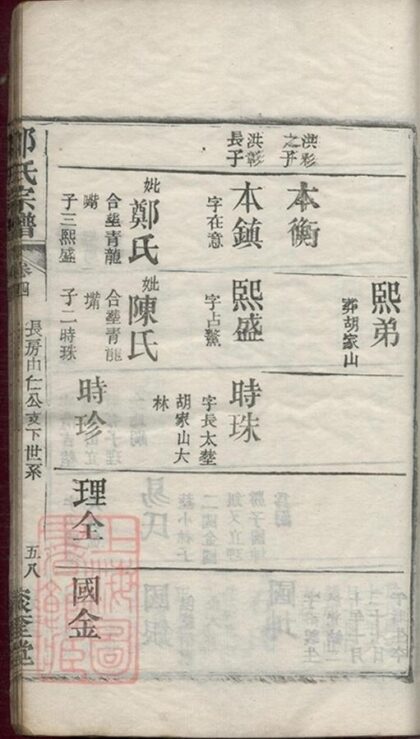 洪彩
之子
本衡
熙弟
葬胡家山
洪彰
長子
本鎮
字在意
妣鄭氏
合塟青龍
嘴
子三熙盛
熙盛
字占鰲
妣陳氏
合塟青龍
嘴
子二時珠
時珠
字長太塟
胡家山大
林
時珍
理全
國金
氏宗譜
卷四
長房由仁公亥下世系
五八